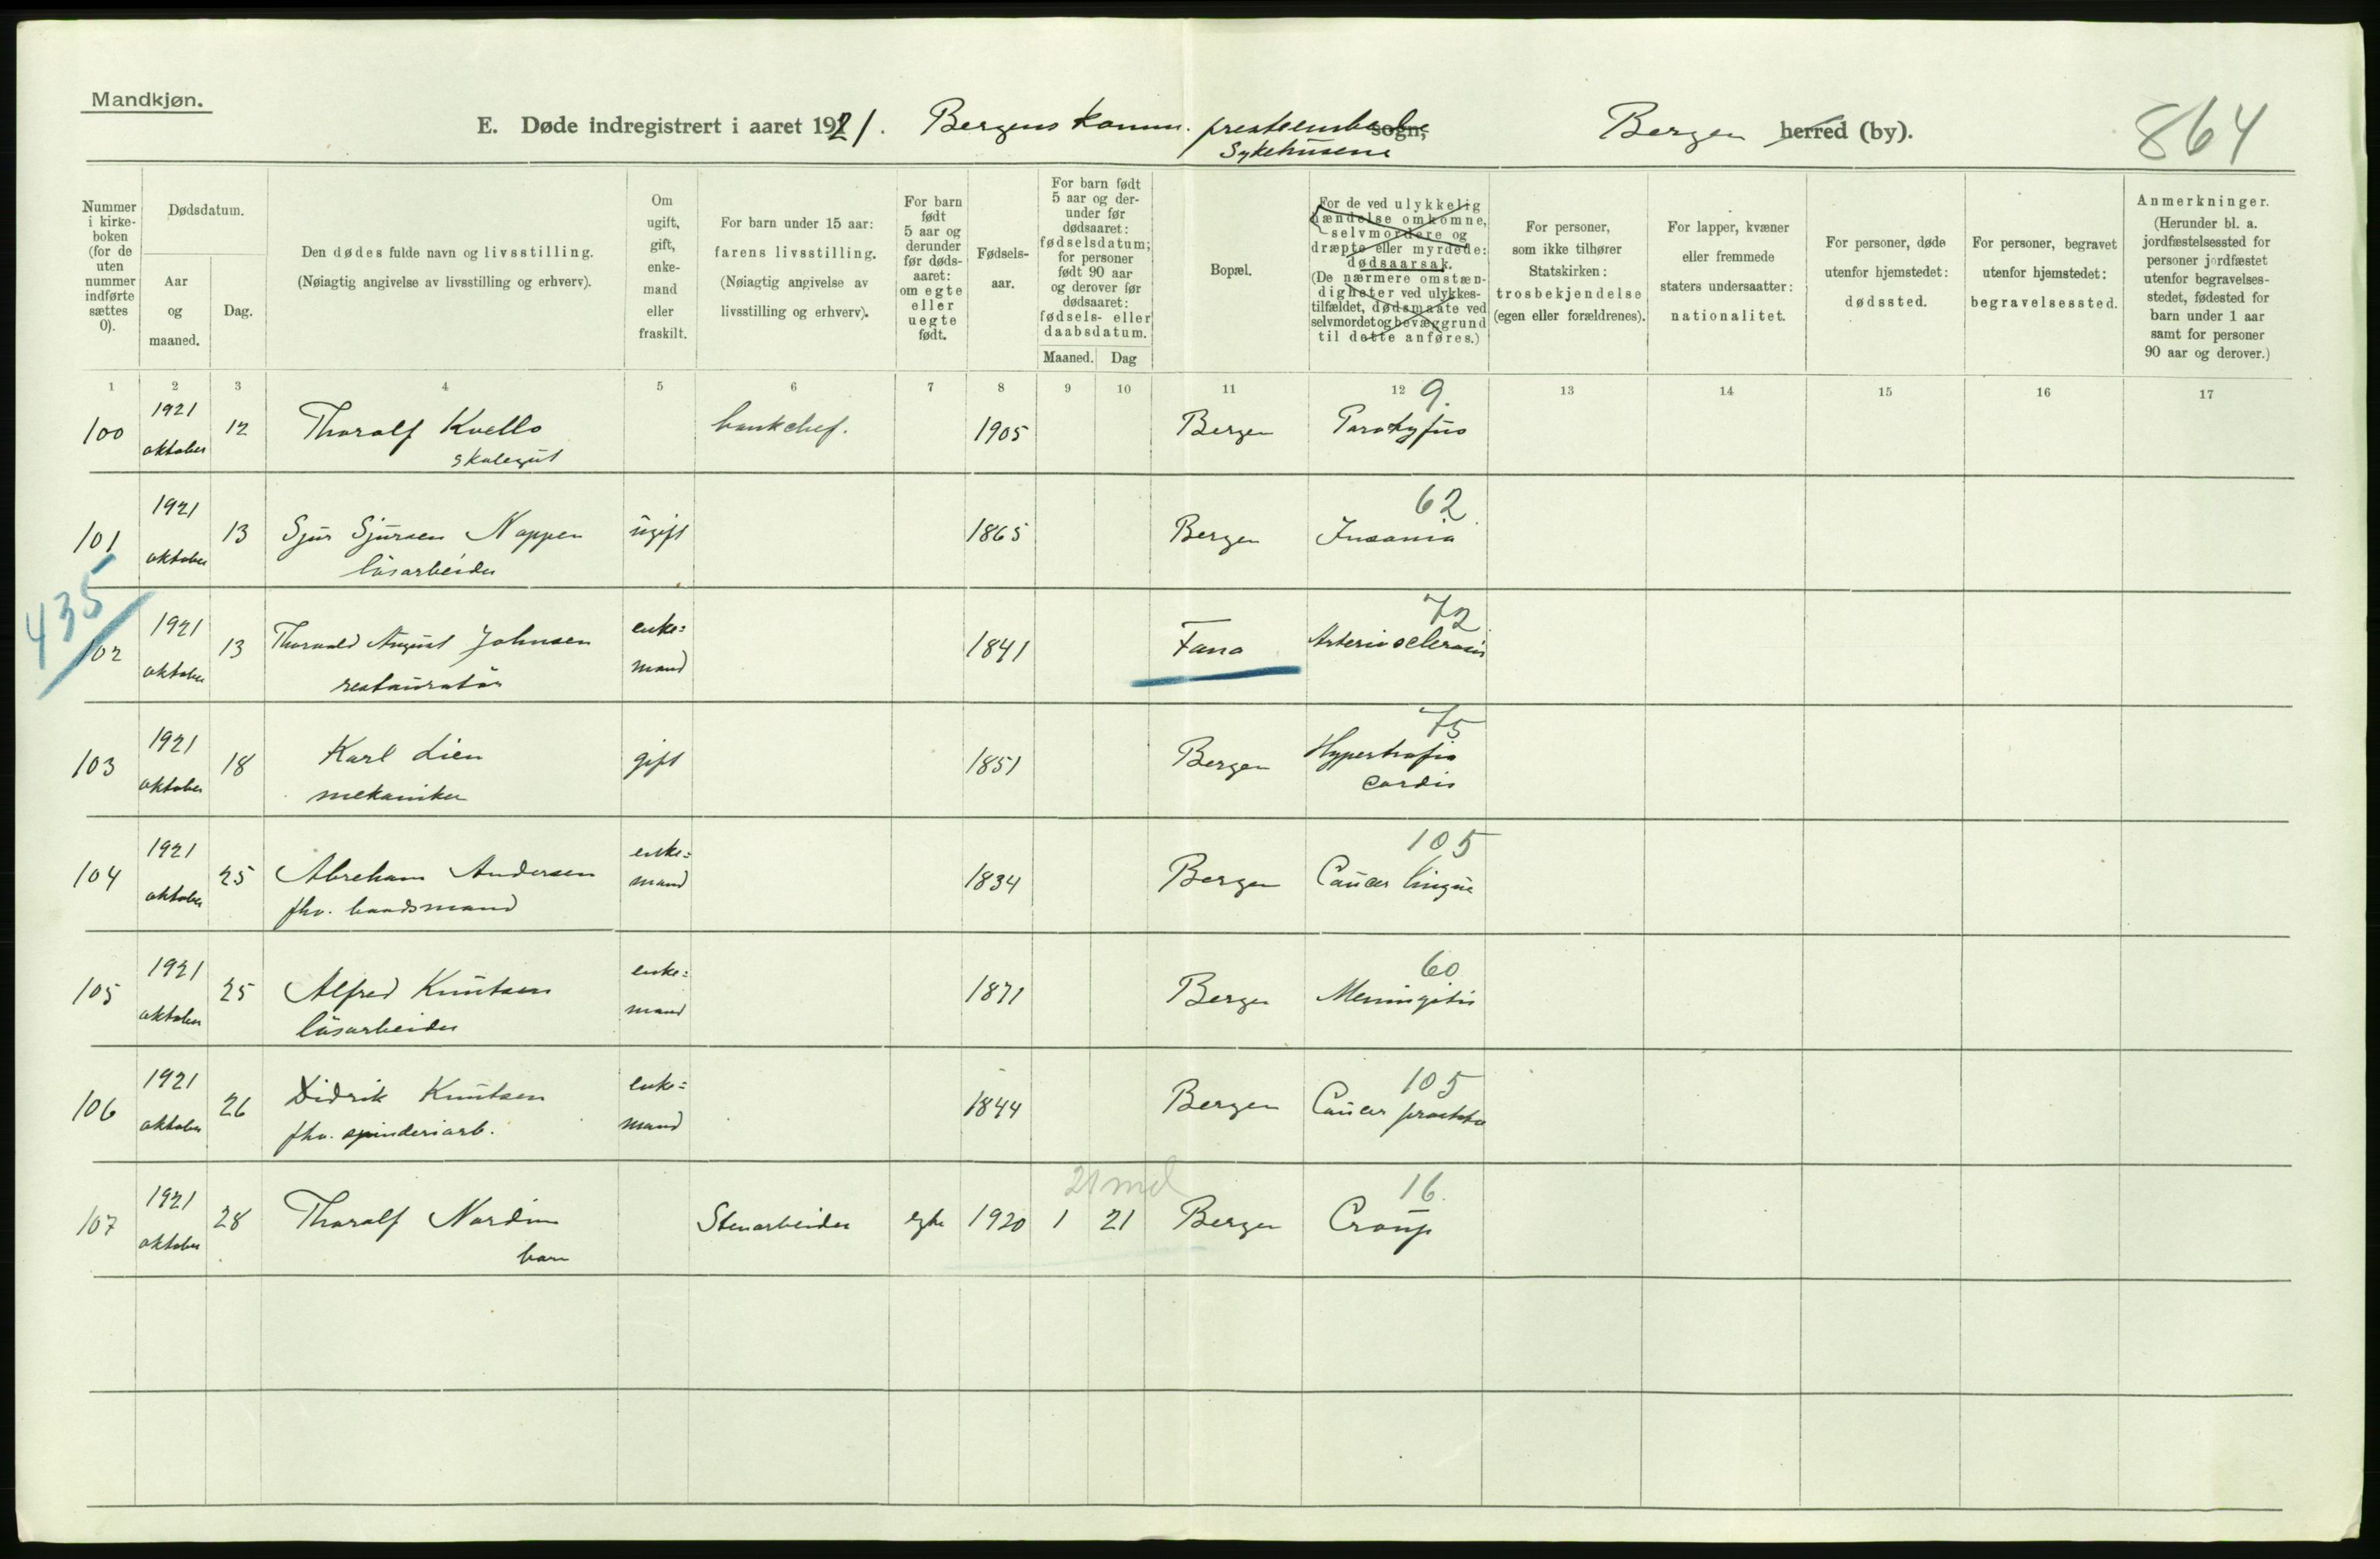 Mandkjøn.
E. Døde indregistrert i aaret 1921. Bergens komm. presteembede sogn, Bergen herred (by). 864
Sykehusene
Nummer i kirke-boken (for de uten nummer indførte sættes 0).
Dødsdatum.
Aar og maaned.
Dag.
Den dødes fulde navn og livsstilling.
(Nøiagtig angivelse av livsstilling og erhverv).
Om ugift, gift, enke-mand eller fraskilt.
For barn under 15 aar: farens livsstilling.
(Nøiagtig angivelse av livsstilling og erhverv).
For barn født 5 aar og derunder før døds-aaret: om egte eller uegte født.
Fødsels-aar.
For barn født 5 aar og der-under før dødsaaret: fødselsdatum; for personer født 90 aar og derover før dødsaaret: fødsels- eller daabsdatum.
Maaned. Dag
Bopæl.
For de ved ulykkelig hændelse omkomne, selvmordere og dræpte eller myrdede: dødsaarsak.
(De nærmere omstæn-digheter ved ulykkes-tilfældet, dødsmaate ved selvmordet og bevæggrund til dette anføres.)
For personer, som ikke tilhører Statskirken: trosbekjendelse (egen eller forældrenes).
For lapper, kvæner eller fremmede staters undersaatter: nationalitet.
For personer, døde utenfor hjemstedet: dødssted.
For personer, begravet utenfor hjemstedet: begravelsessted.
Anmerkninger.
(Herunder bl. a. jordfæstelsessted for personer jordfæstet utenfor begravelses-stedet, fødested for barn under 1 aar samt for personer 90 aar og derover.)
1 2 3 4 5 6 7 8 9 10 11 12 13 14 15 16 17
9.
100 1921 oktober 12 Thoralf Kvello bankchef. 1905 Bergen Paratyfus
skolegut
62
101 1921 oktober 13 Sjur Sjursen Noppen ugift 1865 Bergen Insania
løsarbeider
435
72
102 1921 oktober 13 Thorvald August Johnsen enke=mand 1841 Fana Arteriosclerosis
restauratør
75
103 1921 oktober 18 Karl Lien gift 1851 Bergen Hypertrofia cordis
mekaniker
105
104 1921 oktober 25 Abraham Andersen enke=mand 1834 Bergen Cancer lingue
fhv. baadsmand
60
105 1921 oktober 25 Alfred Knutsen enke=mand 1871 Bergen Meningitis
løsarbeider
105
106 1921 oktober 26 Didrik Knutsen enke=mand 1844 Bergen Cancer prostata
fhv. spinderiarb.
21 md 16.
107 1921 oktober 28 Thoralf Nordin Stenarbeider egte 1920 1 21 Bergen Croup
barn